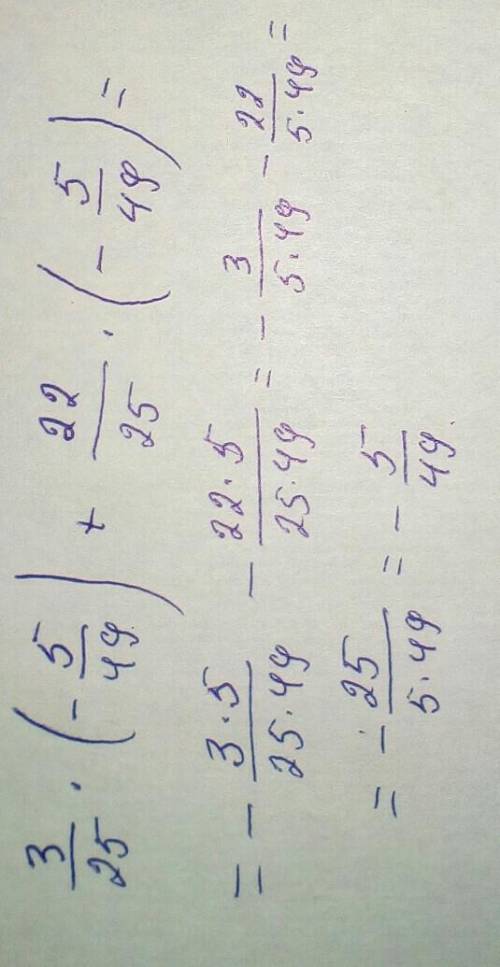 3/25 · (- 5/49) + 22/25 · (- 5/49) =
= - 3·5/25·49 - 22·5/25·49 = - 3/5·49 - 22/5·49 =
= - 25/5·49 = - 5/49.